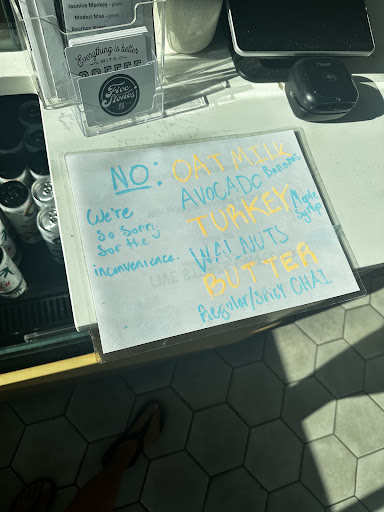 Jasmine Monkey - green
Modest Man - green
Everything is better
WITH
COFFEE
Five
Stones
NO:
OAT MILK
AVOCADO Bananas
TURKEY Maple Syrup
WALNUTS
BUTTER
Regular/Spicy CHAI
We're
So Sorry
for the
inconvenience.